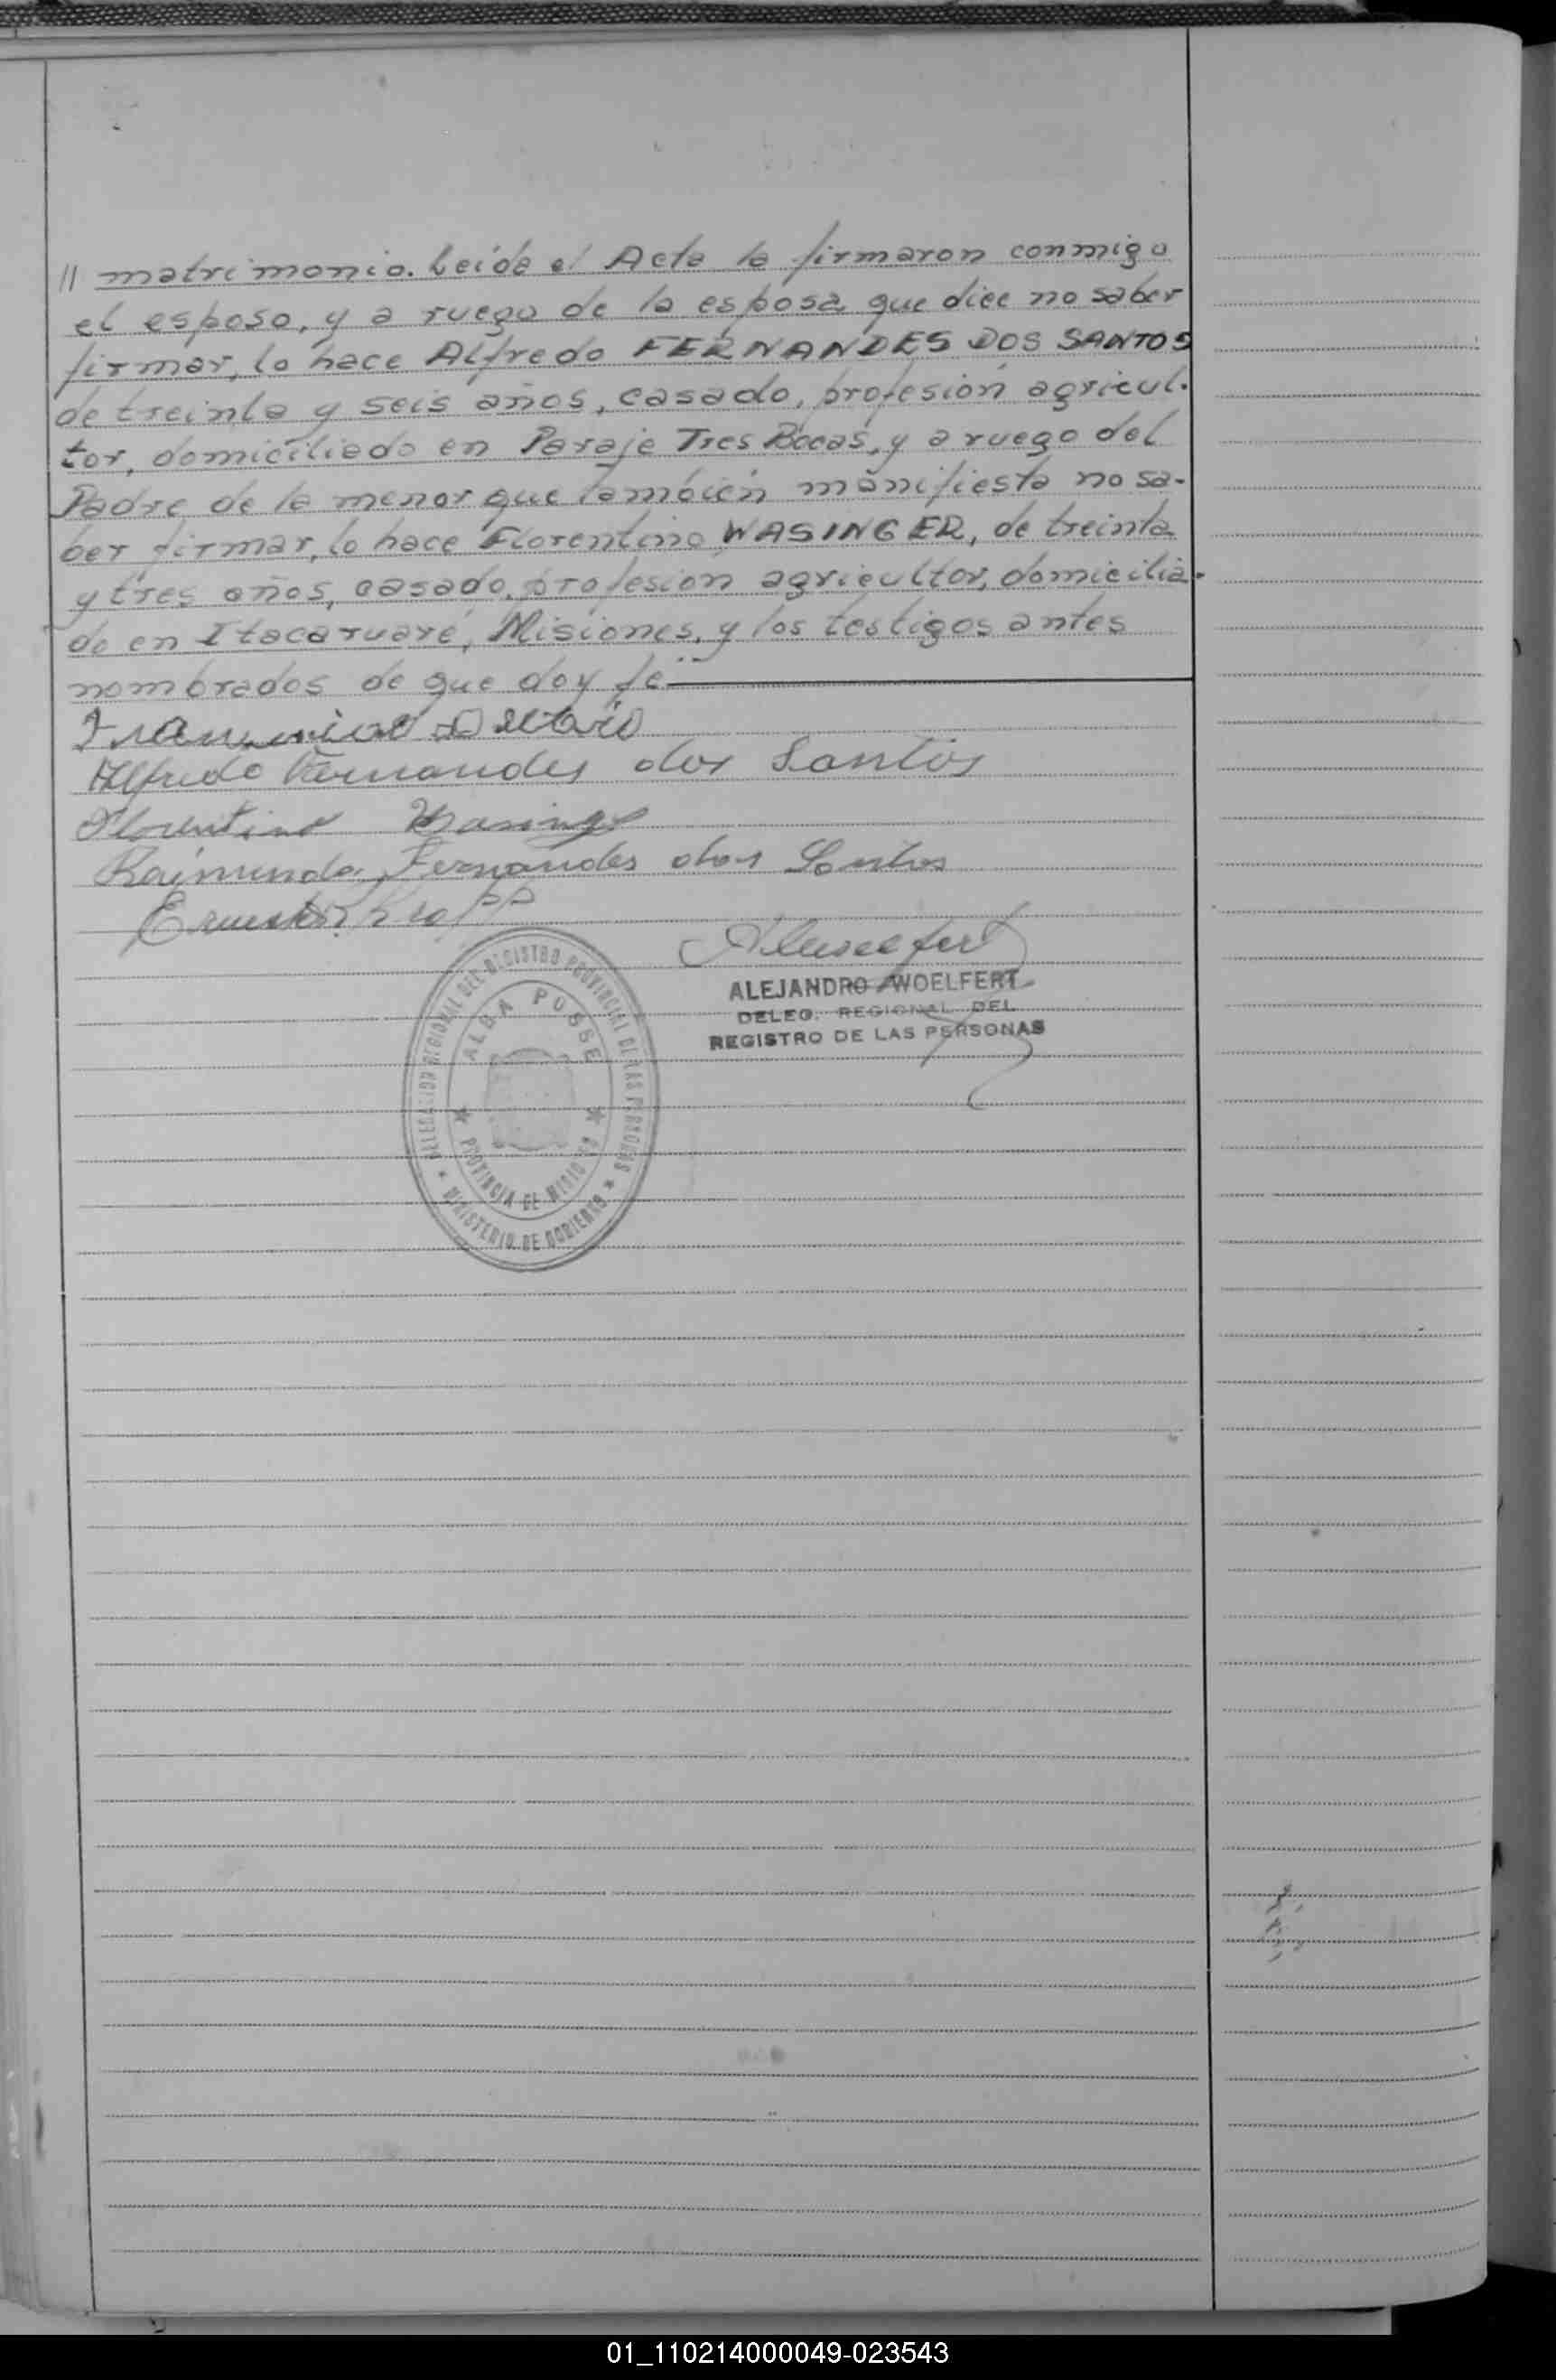 // matrimonio. Leída el Acta la firmaron conmigo
el esposo, y a ruego de la esposa que dice no saber
firmar, lo hace Alfredo FERNANDES DOS SANTOS
de treinta y seis años, casado, profesión agricul-
tor, domiciliado en Paraje Tres Bocas, y a ruego del
Padre de la menor que también manifiesta no sa-
ber firmar, lo hace Florentino WASINGER, de treinta
y tres años, casado, profesión agricultor, domicilia-
do en Itacaruaré, Misiones, y los testigos antes
nombrados de que doy fé
Alfredo Fernandes dos Santos
Florentino Wasinger
Raimundo Fernandes dos Santos
Ernesto Kropp
ALEJANDRO WOELFERT
DELEG. REGIONAL DEL
REGISTRO DE LAS PERSONAS
DELEGACION REGIONAL DEL REGISTRO PROVINCIAL DE LAS PERSONAS
ALBA POSSE
PROVINCIA DE MISIONES
MINISTERIO DE GOBIERNO
01_110214000049-023543